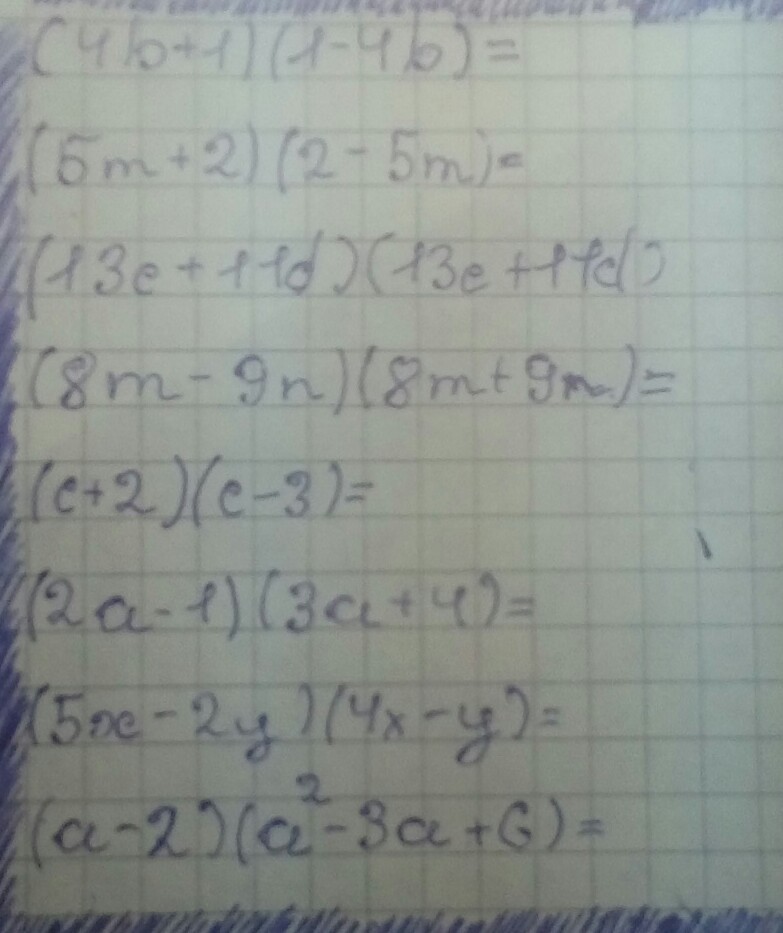 (4b+1)(1-4b)=
(5m+2)(2-5m)=
(13c+11d)(13c+11d)
(8m-9n)(8m+9n)=
(c+2)(c-3)=
(2a-1)(3a+4)=
(5x-2y)(4x-y)=
(a-2)(a²-3a+6)=